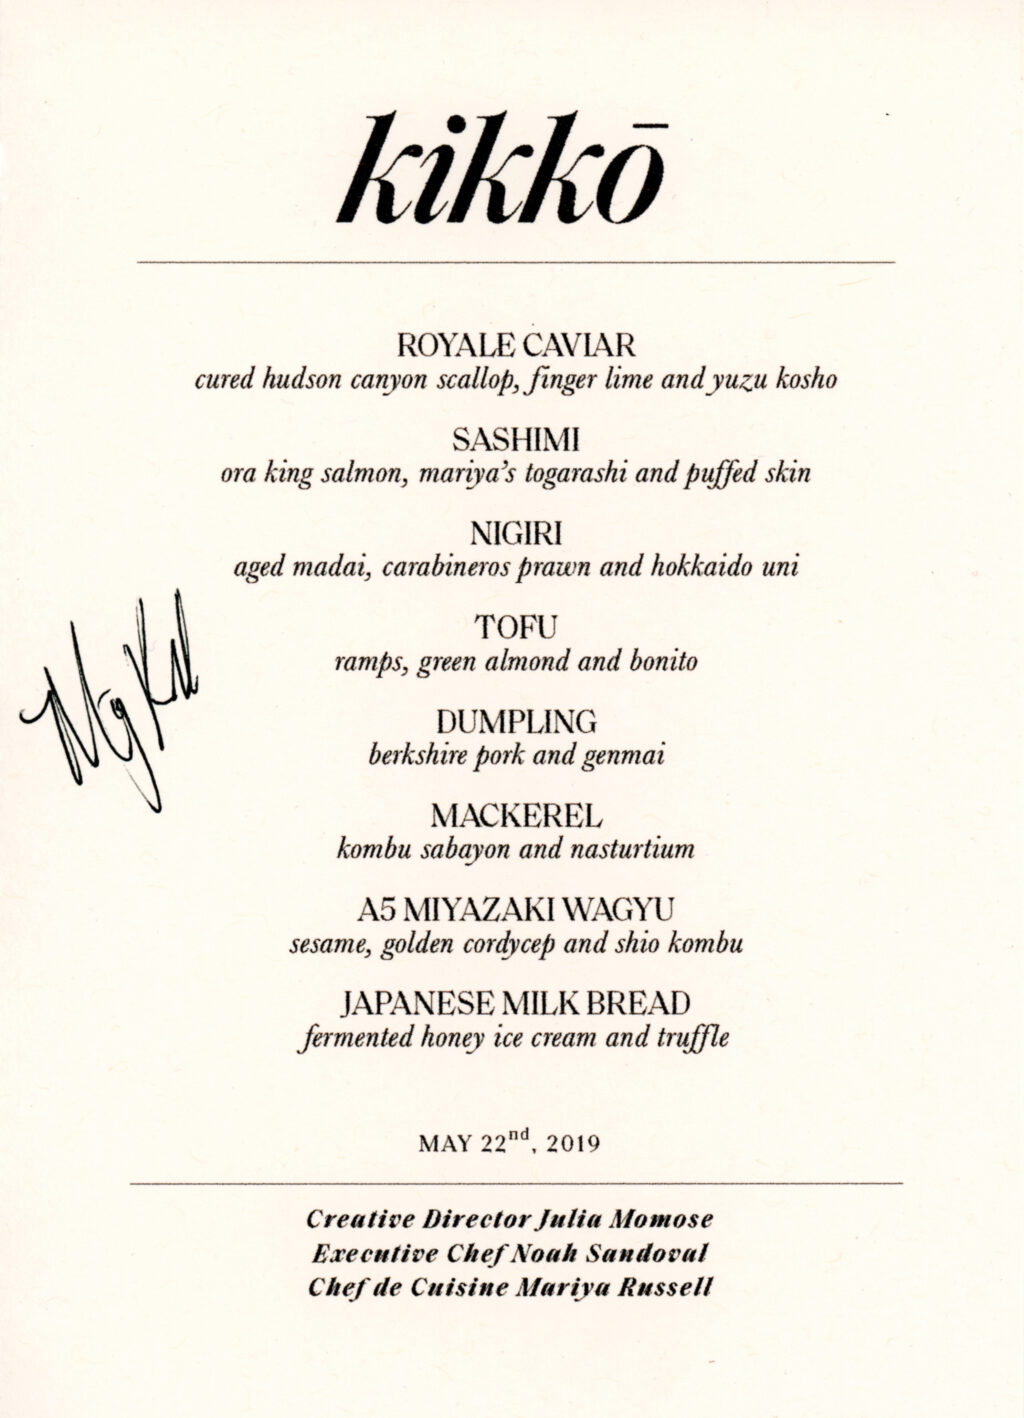 kikkō
ROYALE CAVIAR
cured hudson canyon scallop, finger lime and yuzu kosho
SASHIMI
ora king salmon, mariya's togarashi and puffed skin
NIGIRI
aged madai, carabineros prawn and hokkaido uni
TOFU
ramps, green almond and bonito
DUMPLING
berkshire pork and genmai
MACKEREL
kombu sabayon and nasturtium
A5 MIYAZAKI WAGYU
sesame, golden cordycep and shio kombu
JAPANESE MILK BREAD
fermented honey ice cream and truffle
MAY 22nd, 2019
Creative Director Julia Momose
Executive Chef Noah Sandoval
Chef de Cuisine Mariya Russell